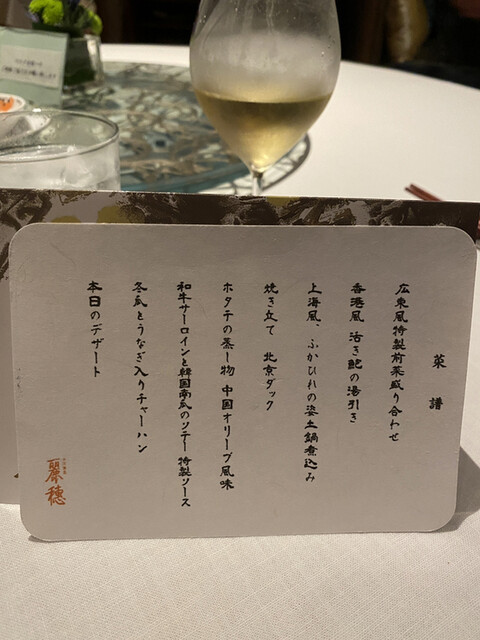 菜譜
広東風特製前菜盛り合わせ
香港風 活き鮑の湯引き
上海風、ふかひれの姿土鍋煮込み
焼き立て 北京ダック
ホタチの蒸し物 中国オリーブ風味
和牛サーロインと韓国南瓜のソテー 特製ソース
冬瓜とうなぎ入りチャーハン
本日のデザート
麗穂